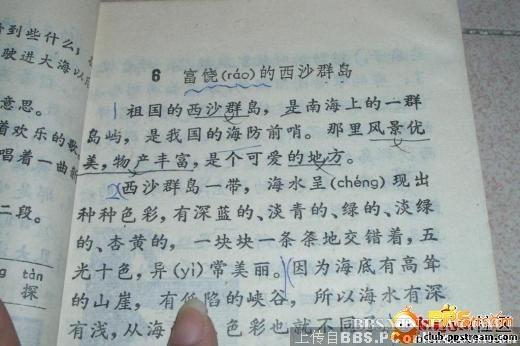 看到些什么,
驶进大海以
意思。
着欢乐的歌
唱着一曲
二段。
tàn
探
6 富饶(ráo)的西沙群岛
1 祖国的西沙群岛,是南海上的一群
岛屿,是我国的海防前哨。那里风景优
美,物产丰富,是个可爱的地方。
2 西沙群岛一带,海水呈(chéng)现出
种种色彩,有深蓝的、淡青的、绿的、淡绿
的、杏黄的,一块块一条条地交错着,五
光十色,异(yì)常美丽。因为海底有高耸
的山崖,有低陷的峡谷,所以海水有深
有浅,从海 色彩也就不同
上传自BBS.PPS
club.ppstream.com